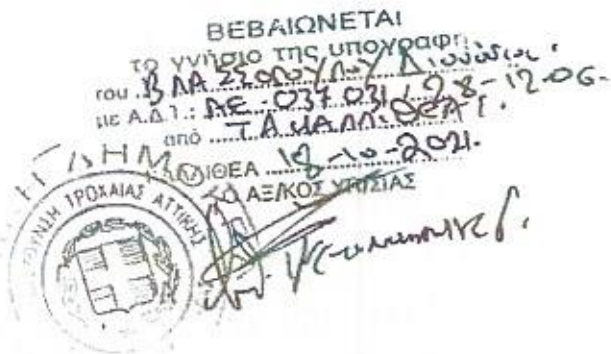 ΒΕΒΑΙΩΝΕΤΑΙ
το γνήσιο της υπογραφή
του ΒΛΑΣΣΟΠΟΥΛΟΥ Διονύσιου
με Α.Δ.Τ.: ΑΕ-037031/28-12-06-
από Τ.Α ΚΑΛΛΙΘΕΑΣ.
ΘΕΑ 18-10-2021.
Ο ΑΞ/ΚΟΣ ΥΠΗΣΙΑΣ
ΤΡΟΧΑΙΑΣ ΑΤΤΙΚΗΣ